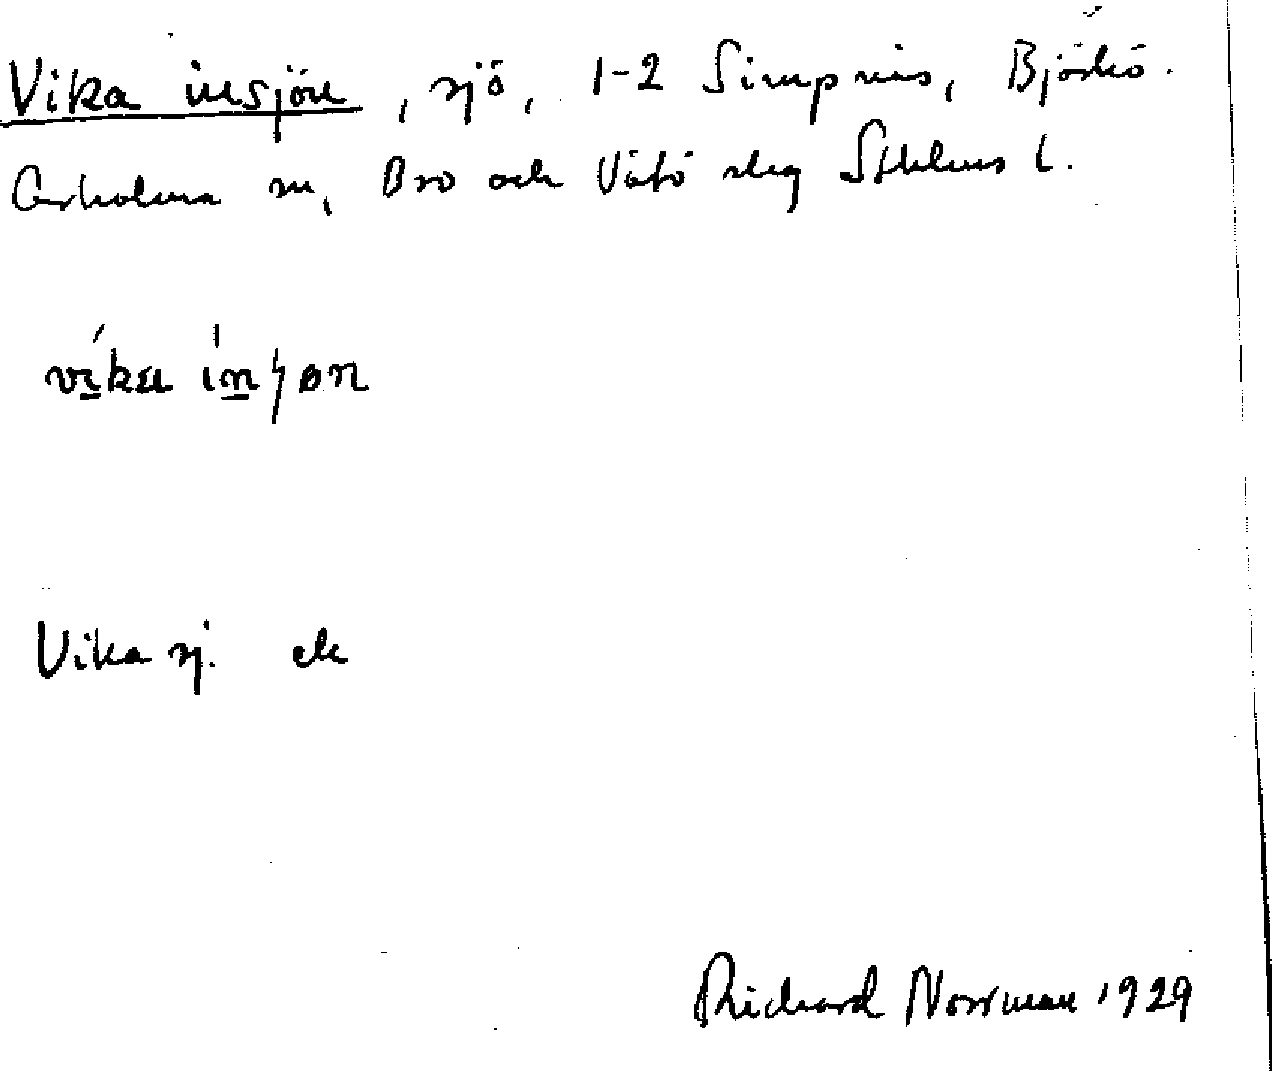 Vika insjön, sjö, 1-2 Simpnäs, Björkö-
Arholma sn, Bro och Vätö slg Sthlms l.
vika insjøn
Vika sj. ek
Richard Norrman 1929